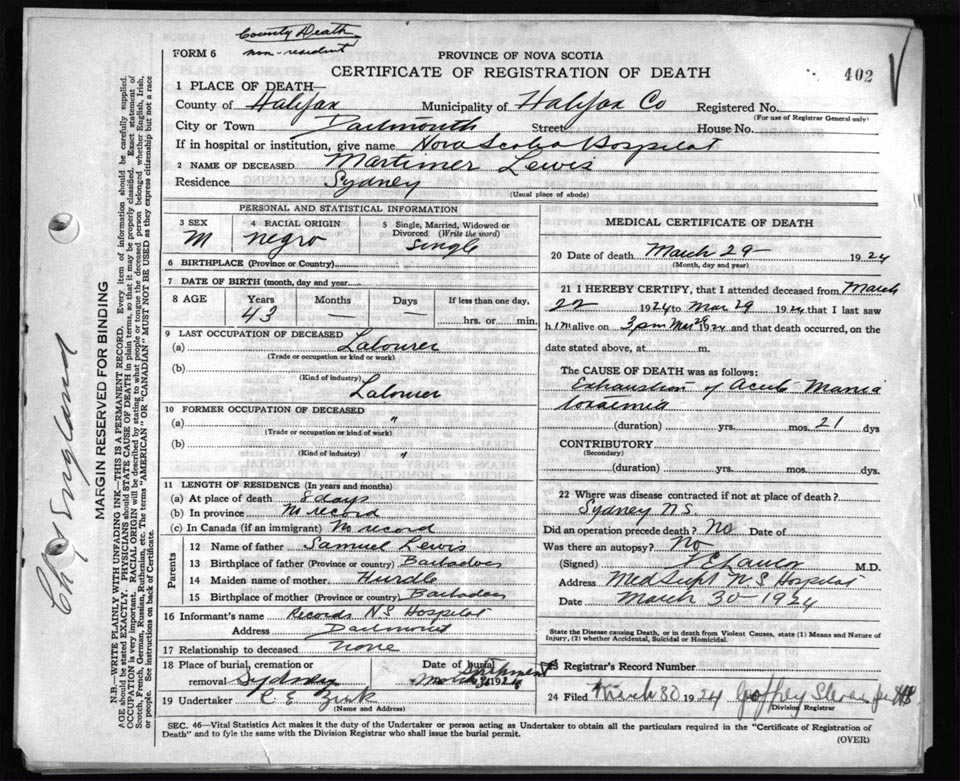 County Death
non-resident
FORM 6
PROVINCE OF NOVA SCOTIA
CERTIFICATE OF REGISTRATION OF DEATH
402
1 PLACE OF DEATH—
County of Halifax Municipality of Halifax Co Registered No.
(For use of Registrar General only)
City or Town Dartmouth Street House No.
If in hospital or institution, give name Nova Scotia Hospital
2 NAME OF DECEASED Martimer Lewis
Residence Sydney
(Usual place of abode)
PERSONAL AND STATISTICAL INFORMATION
3 SEX
M
4 RACIAL ORIGIN
negro
5 Single, Married, Widowed or
Divorced (Write the word)
Single
6 BIRTHPLACE (Province or Country)
7 DATE OF BIRTH (month, day and year)
8 AGE Years Months Days If less than one day,
43 — — hrs. or min.
9 LAST OCCUPATION OF DECEASED
(a) Labourer
(Trade or occupation or kind or work)
(b)
(Kind of industry)
Labourer
10 FORMER OCCUPATION OF DECEASED
(a) "
(Trade or occupation or kind of work)
(b)
(Kind of industry) "
11 LENGTH OF RESIDENCE (In years and months)
(a) At place of death 8 days
(b) In province No record
(c) In Canada (if an immigrant) No record
Parents
12 Name of father Samuel Lewis
13 Birthplace of father (Province or country) Barbadoes
14 Maiden name of mother Hurdle
15 Birthplace of mother (Province or country) Barbadoes
16 Informant's name Records N S Hospital
Address Dartmouth
17 Relationship to deceased none
18 Place of burial, cremation or Date of burial Shipment
removal Sydney March 31 1924
19 Undertaker C E
(Name and Address)
MEDICAL CERTIFICATE OF DEATH
20 Date of death March 29 1924
(Month, day and year)
21 I HEREBY CERTIFY, that I attended deceased from March
22 1924 to Mar 29 1924 that I last saw
h im alive on 3 pm Mar 29 1924 and that death occurred, on the
date stated above, at m.
The CAUSE OF DEATH was as follows:
Exhaustion of Acute Mania
(duration) yrs. mos. 21 dys
CONTRIBUTORY
(Secondary)
(duration) yrs. mos. dys.
22 Where was disease contracted if not at place of death?
Sydney N.S.
Did an operation precede death? No Date of
Was there an autopsy? No
(Signed) F E Lawlor M.D.
Address Med Supt N S Hospital
Date March 30 1924
State the Disease causing Death, or in death from Violent Causes, state (1) Means and Nature of
Injury, (2) whether Accidental, Suicidal or Homicidal.
23 Registrar's Record Number
24 Filed March 30 1924 Geoffrey
Division Registrar
SEC. 46—Vital Statistics Act makes it the duty of the Undertaker or person acting as Undertaker to obtain all the particulars required in the "Certificate of Registration of
Death" and to fyle the same with the Division Registrar who shall issue the burial permit.
(OVER)
MARGIN RESERVED FOR BINDING
N.B.—WRITE PLAINLY WITH UNFADING INK—THIS IS A PERMANENT RECORD. Every item of information should be carefully supplied.
AGE should be stated EXACTLY. PHYSICIANS should STATE CAUSE OF DEATH in plain terms, so that it may be properly classified. Exact statement of
OCCUPATION is very important. RACIAL ORIGIN will be described by stating to what people or tongue the deceased person belonged whether English, Irish,
Scotch, French, German, Russian, Ruthenian, etc. The terms "AMERICAN" OR "CANADIAN" MUST NOT BE USED as they express citizenship but not a race
or people. See instructions on back of Certificate.
Ch of England